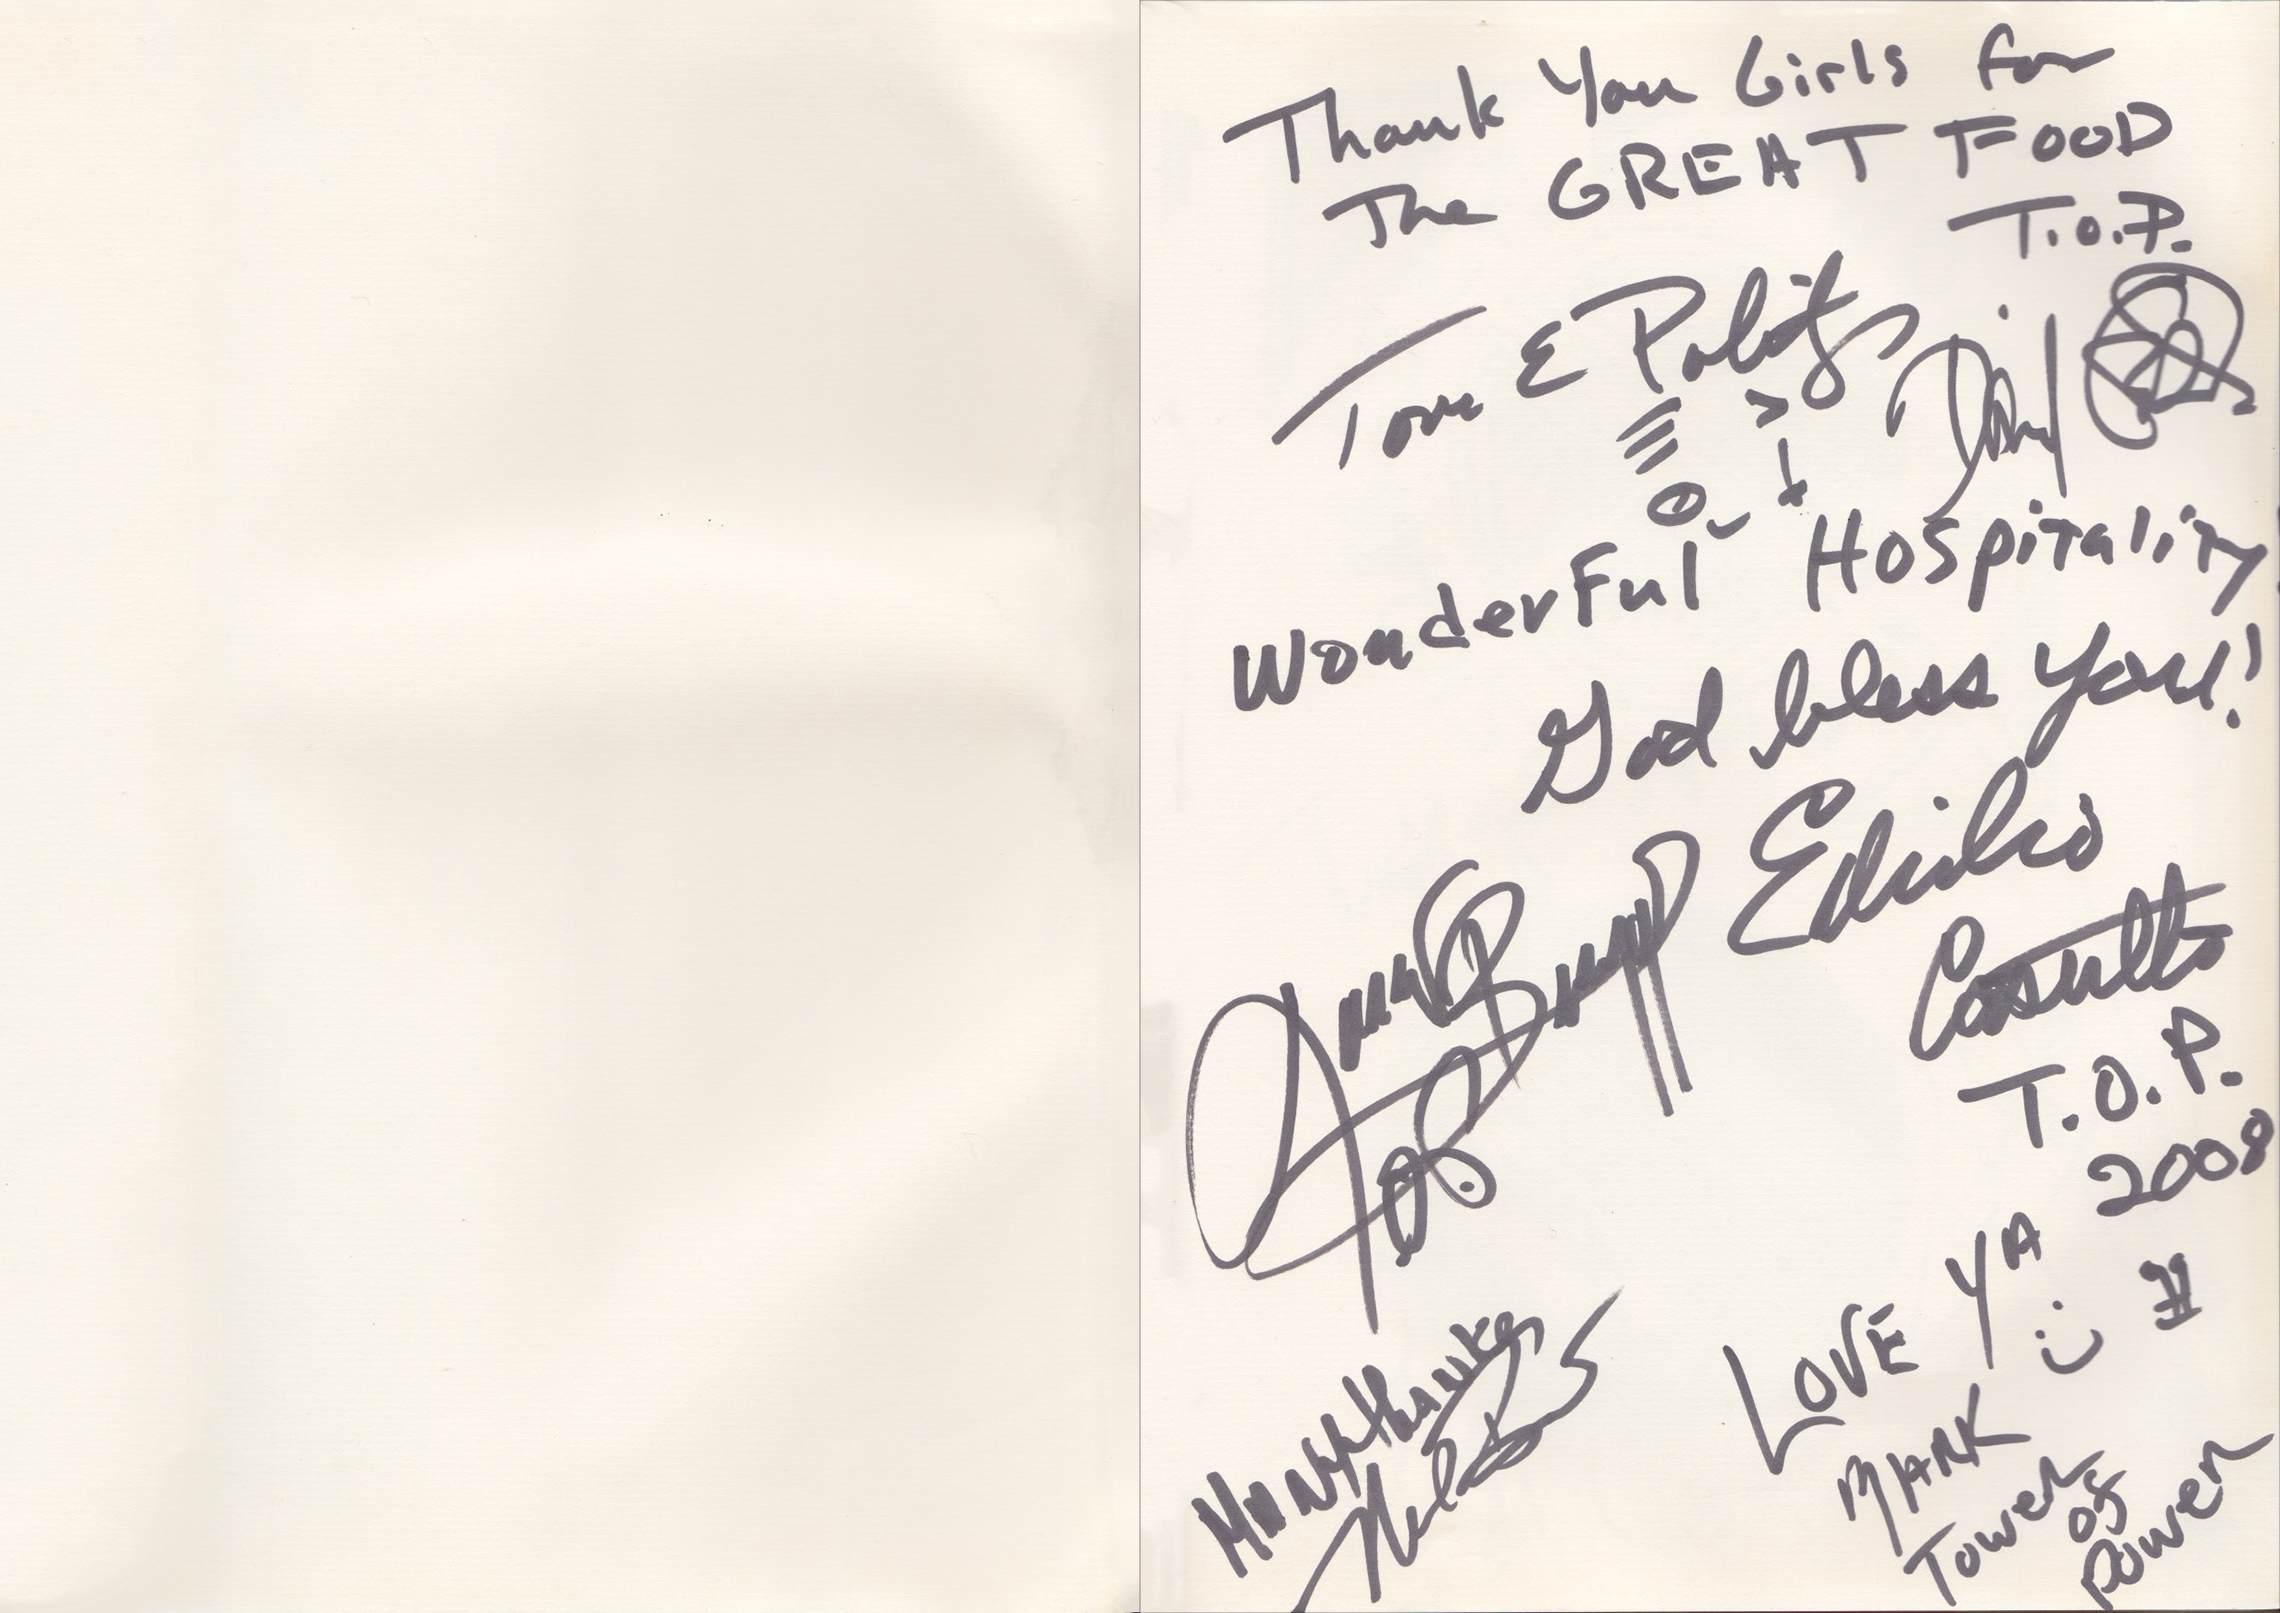 Thank You Girls for
The GREAT FOOD
T.O.P.
Tom E Politzer
Wonderful Hospitality
God bless you!
Emilio
Castillo
T.O.P.
2008
Many thanks
LOVE YA
MARK
Tower
of
Power